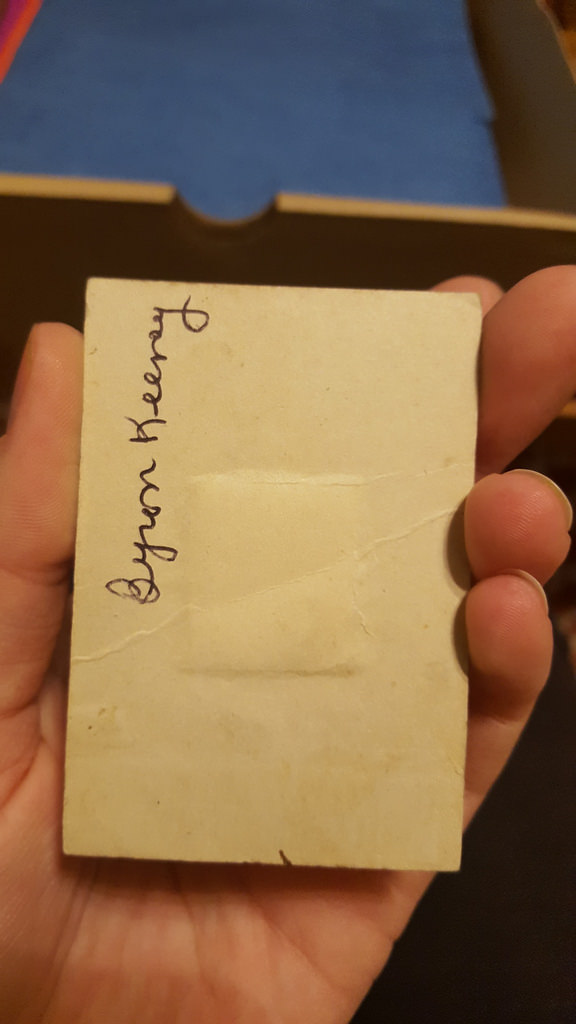 Byron Keeney